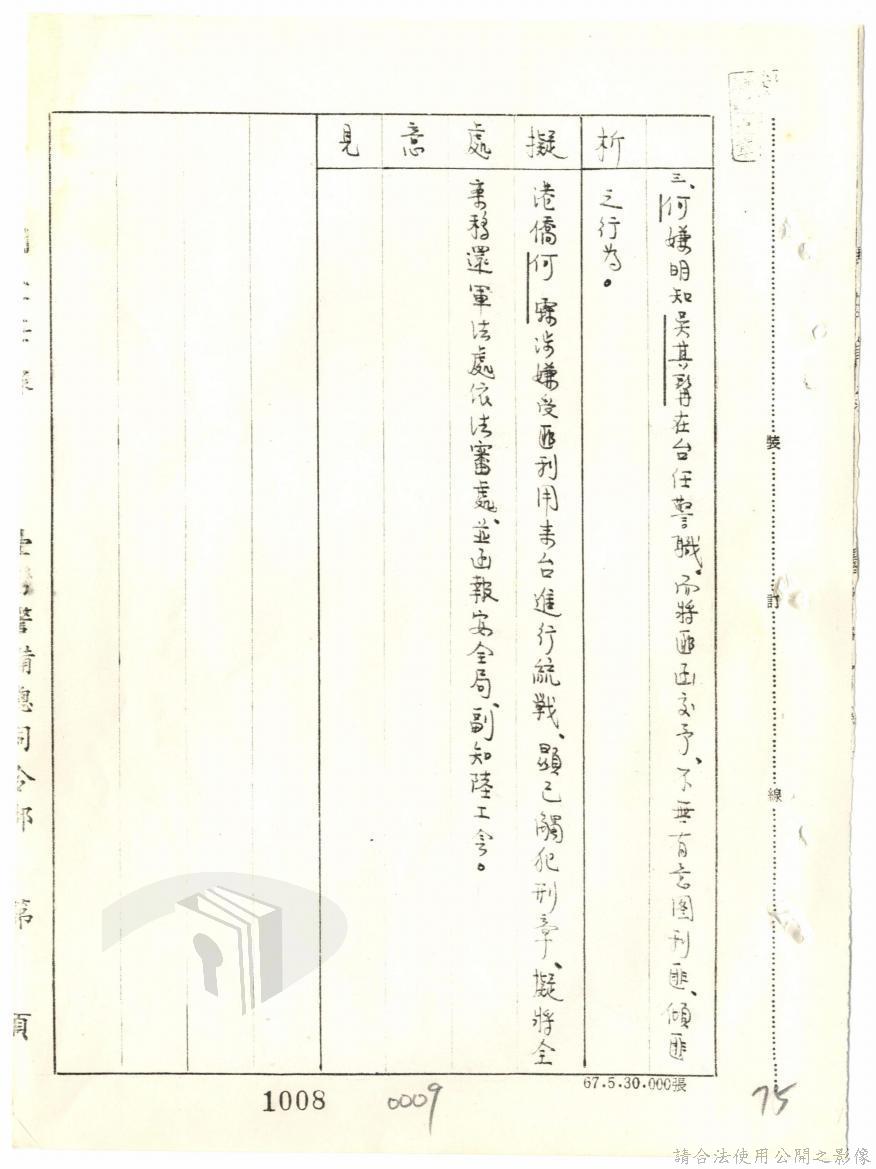 析
三、何嫌明知吳其
在台任警職。而將匪函交予、不無有意圖利匪、傾匪
之行為。
擬處意見
港僑何
涉嫌受匪利用来台進行統戰、顯已觸犯刑章、擬將全
案移還軍法處依法審處、並函報安全局、副知陸工會。
裝
訂
線
警備總司令部 第 頁
67.5.30.000張
1008
0009
75
請合法使用公開之影像